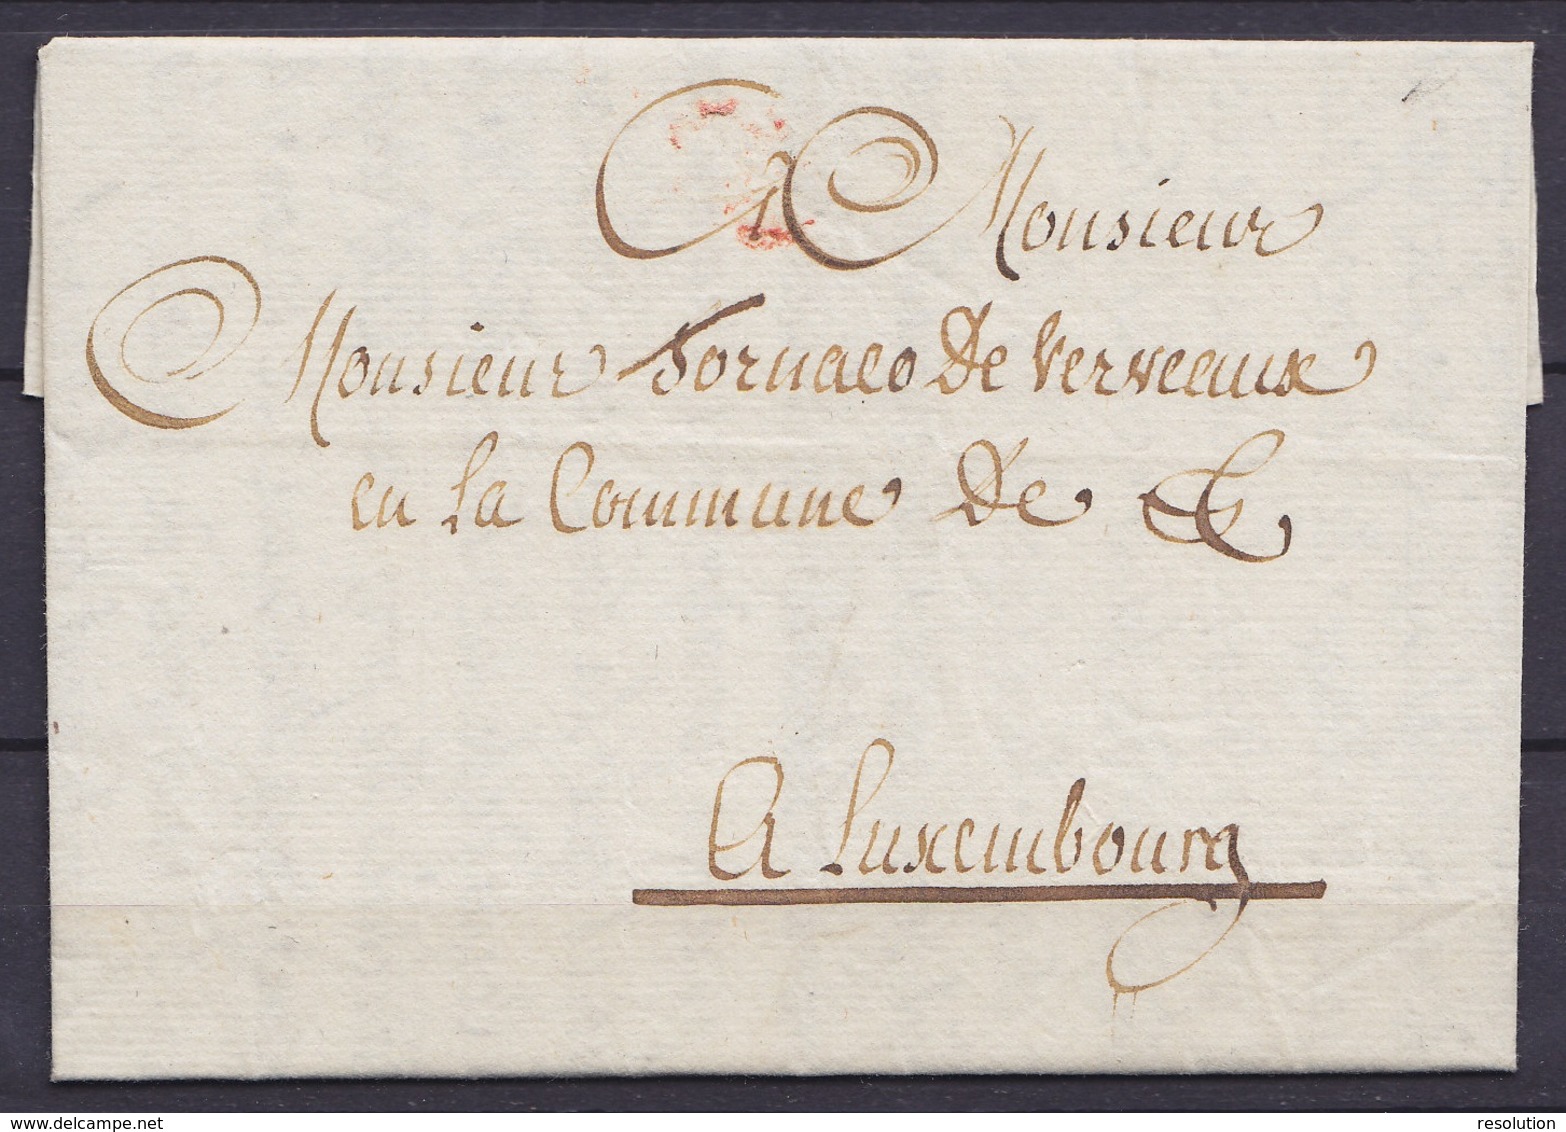 A Monsieur
Monsieur Tornaco De Verveaux
en la Commune De &
A Luxembourg
www.delcampe.net
resolution